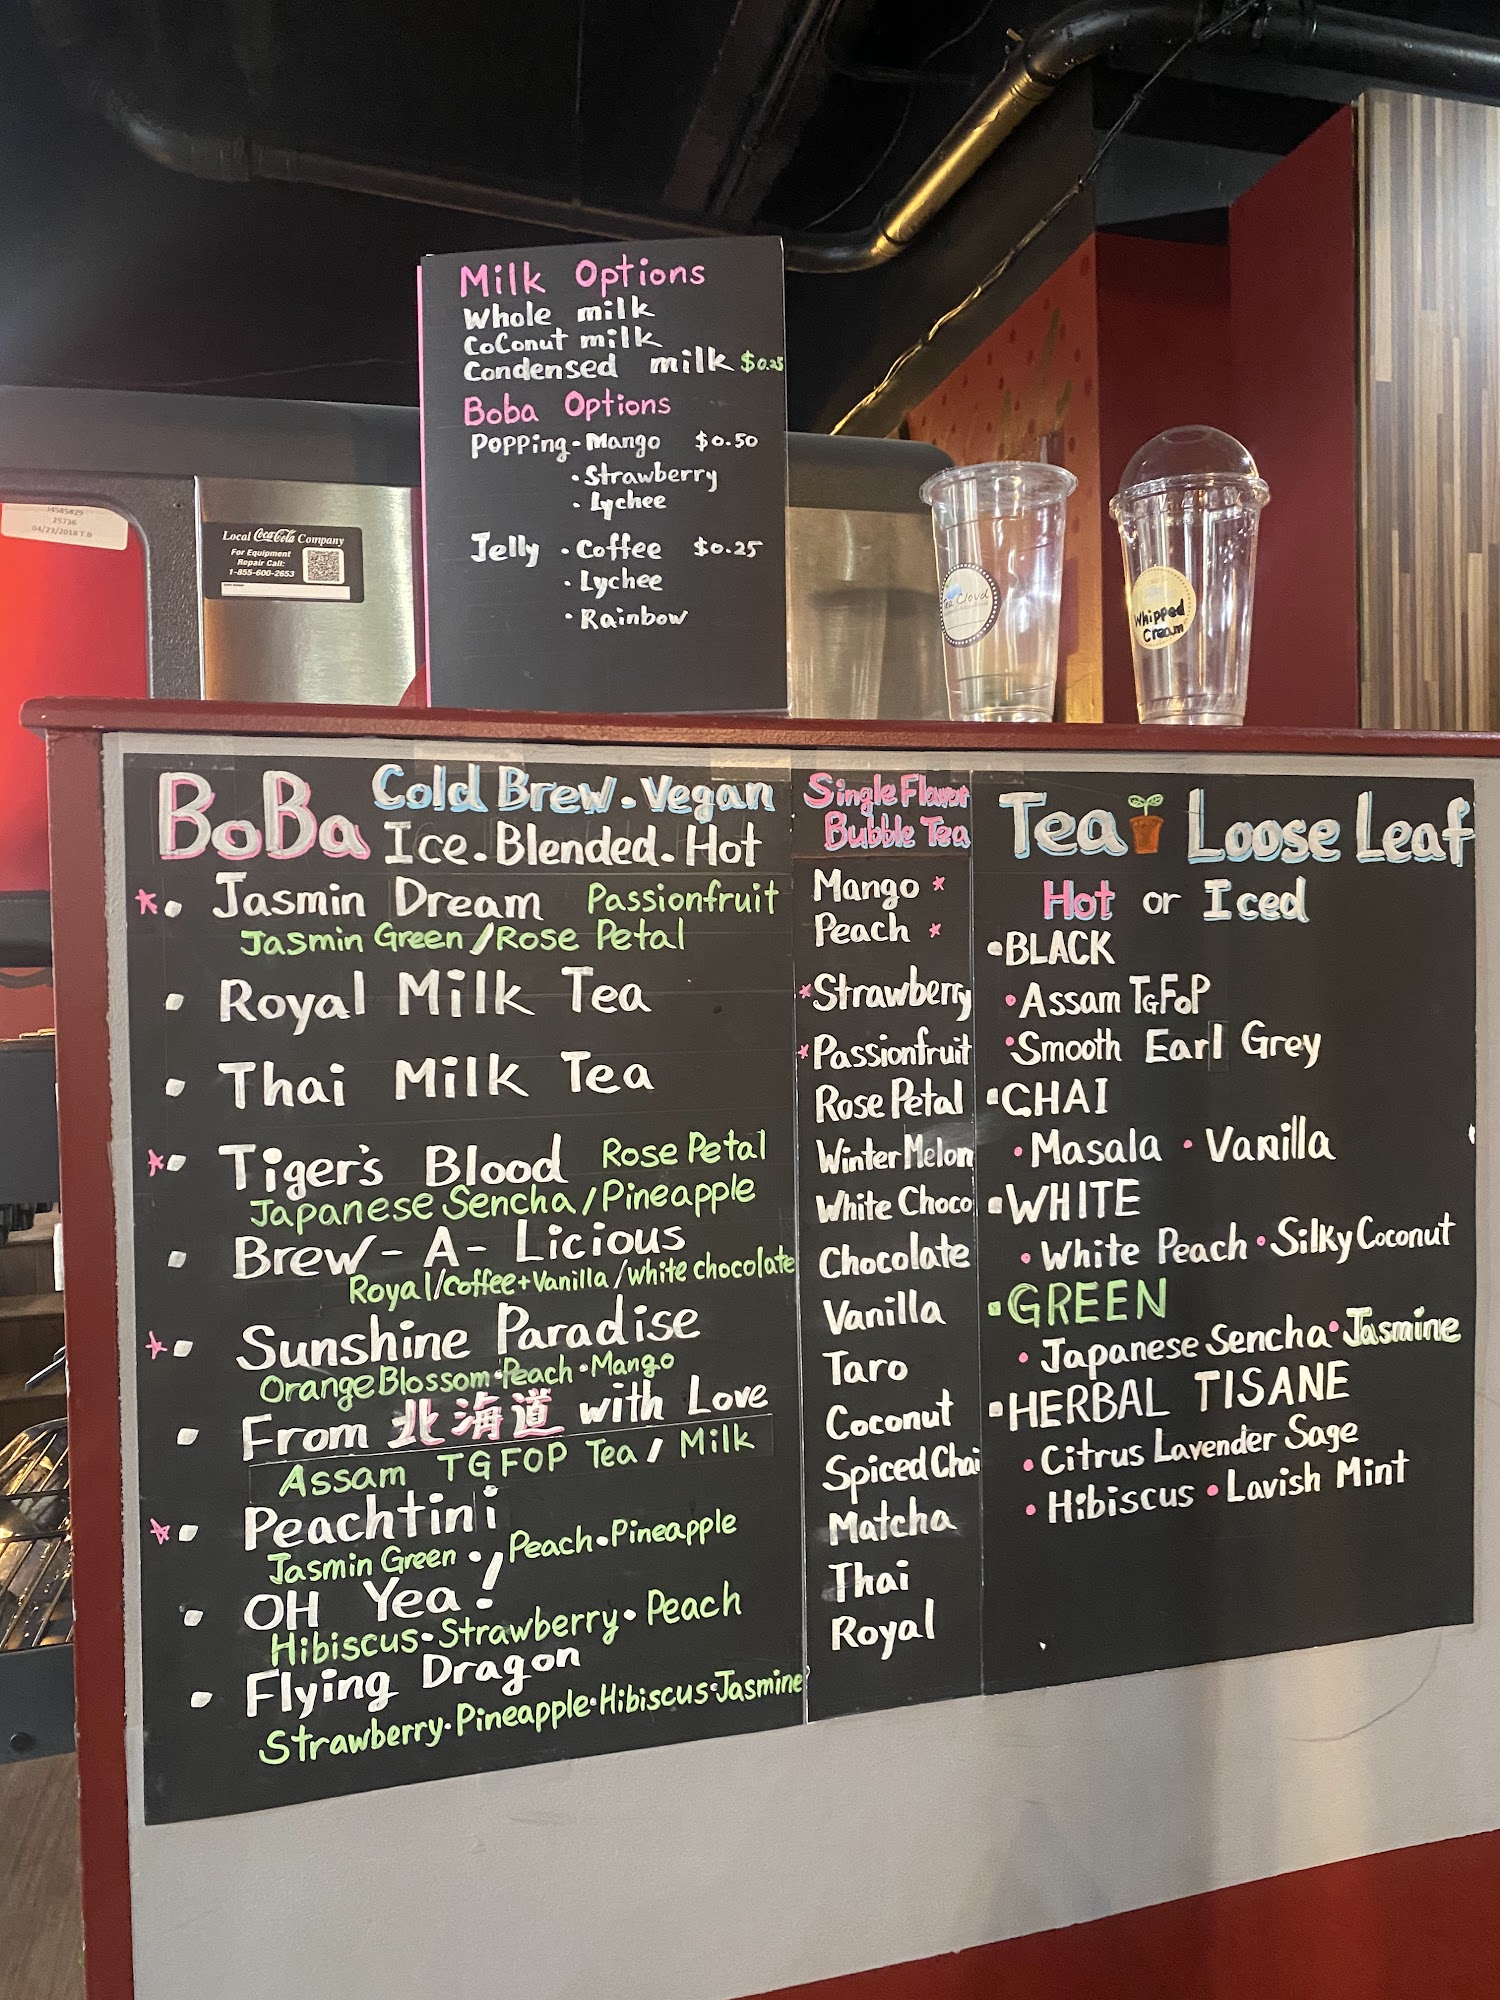 Milk Options
Whole milk
CoConut milk
Condensed milk $0.25
Boba Options
Popping - Mango $0.50
• Strawberry
• Lychee
Jelly • Coffee $0.25
• Lychee
• Rainbow
25736
04/23/2018 T.B
Local Coca-Cola Company
For Equipment
Repair Call:
1-855-600-2653
Tea Cloud
Whipped
Cream
BoBa Cold Brew. Vegan
Ice. Blended. Hot
* • Jasmin Dream Passionfruit
Jasmin Green / Rose Petal
• Royal Milk Tea
• Thai Milk Tea
* • Tiger's Blood Rose Petal
Japanese Sencha / Pineapple
• Brew-A-Licious
Royal/Coffee+Vanilla/white chocolate
* • Sunshine Paradise
Orange Blossom • Peach • Mango
• From 北海道 with Love
Assam TGFOP Tea / Milk
* • Peachtini
Jasmin Green • / Peach • Pineapple
• OH Yea!
Hibiscus • Strawberry • Peach
• Flying Dragon
Strawberry • Pineapple • Hibiscus • Jasmine
Single Flavor
Bubble Tea
Mango *
Peach *
* Strawberry
* Passionfruit
Rose Petal
Winter Melon
White Choco
Chocolate
Vanilla
Taro
Coconut
Spiced Chai
Matcha
Thai
Royal
Tea Loose Leaf
Hot or Iced
• BLACK
• Assam TGFOP
• Smooth Earl Grey
• CHAI
• Masala • Vanilla
• WHITE
• White Peach • Silky Coconut
• GREEN
• Japanese Sencha • Jasmine
• HERBAL TISANE
• Citrus Lavender Sage
• Hibiscus • Lavish Mint